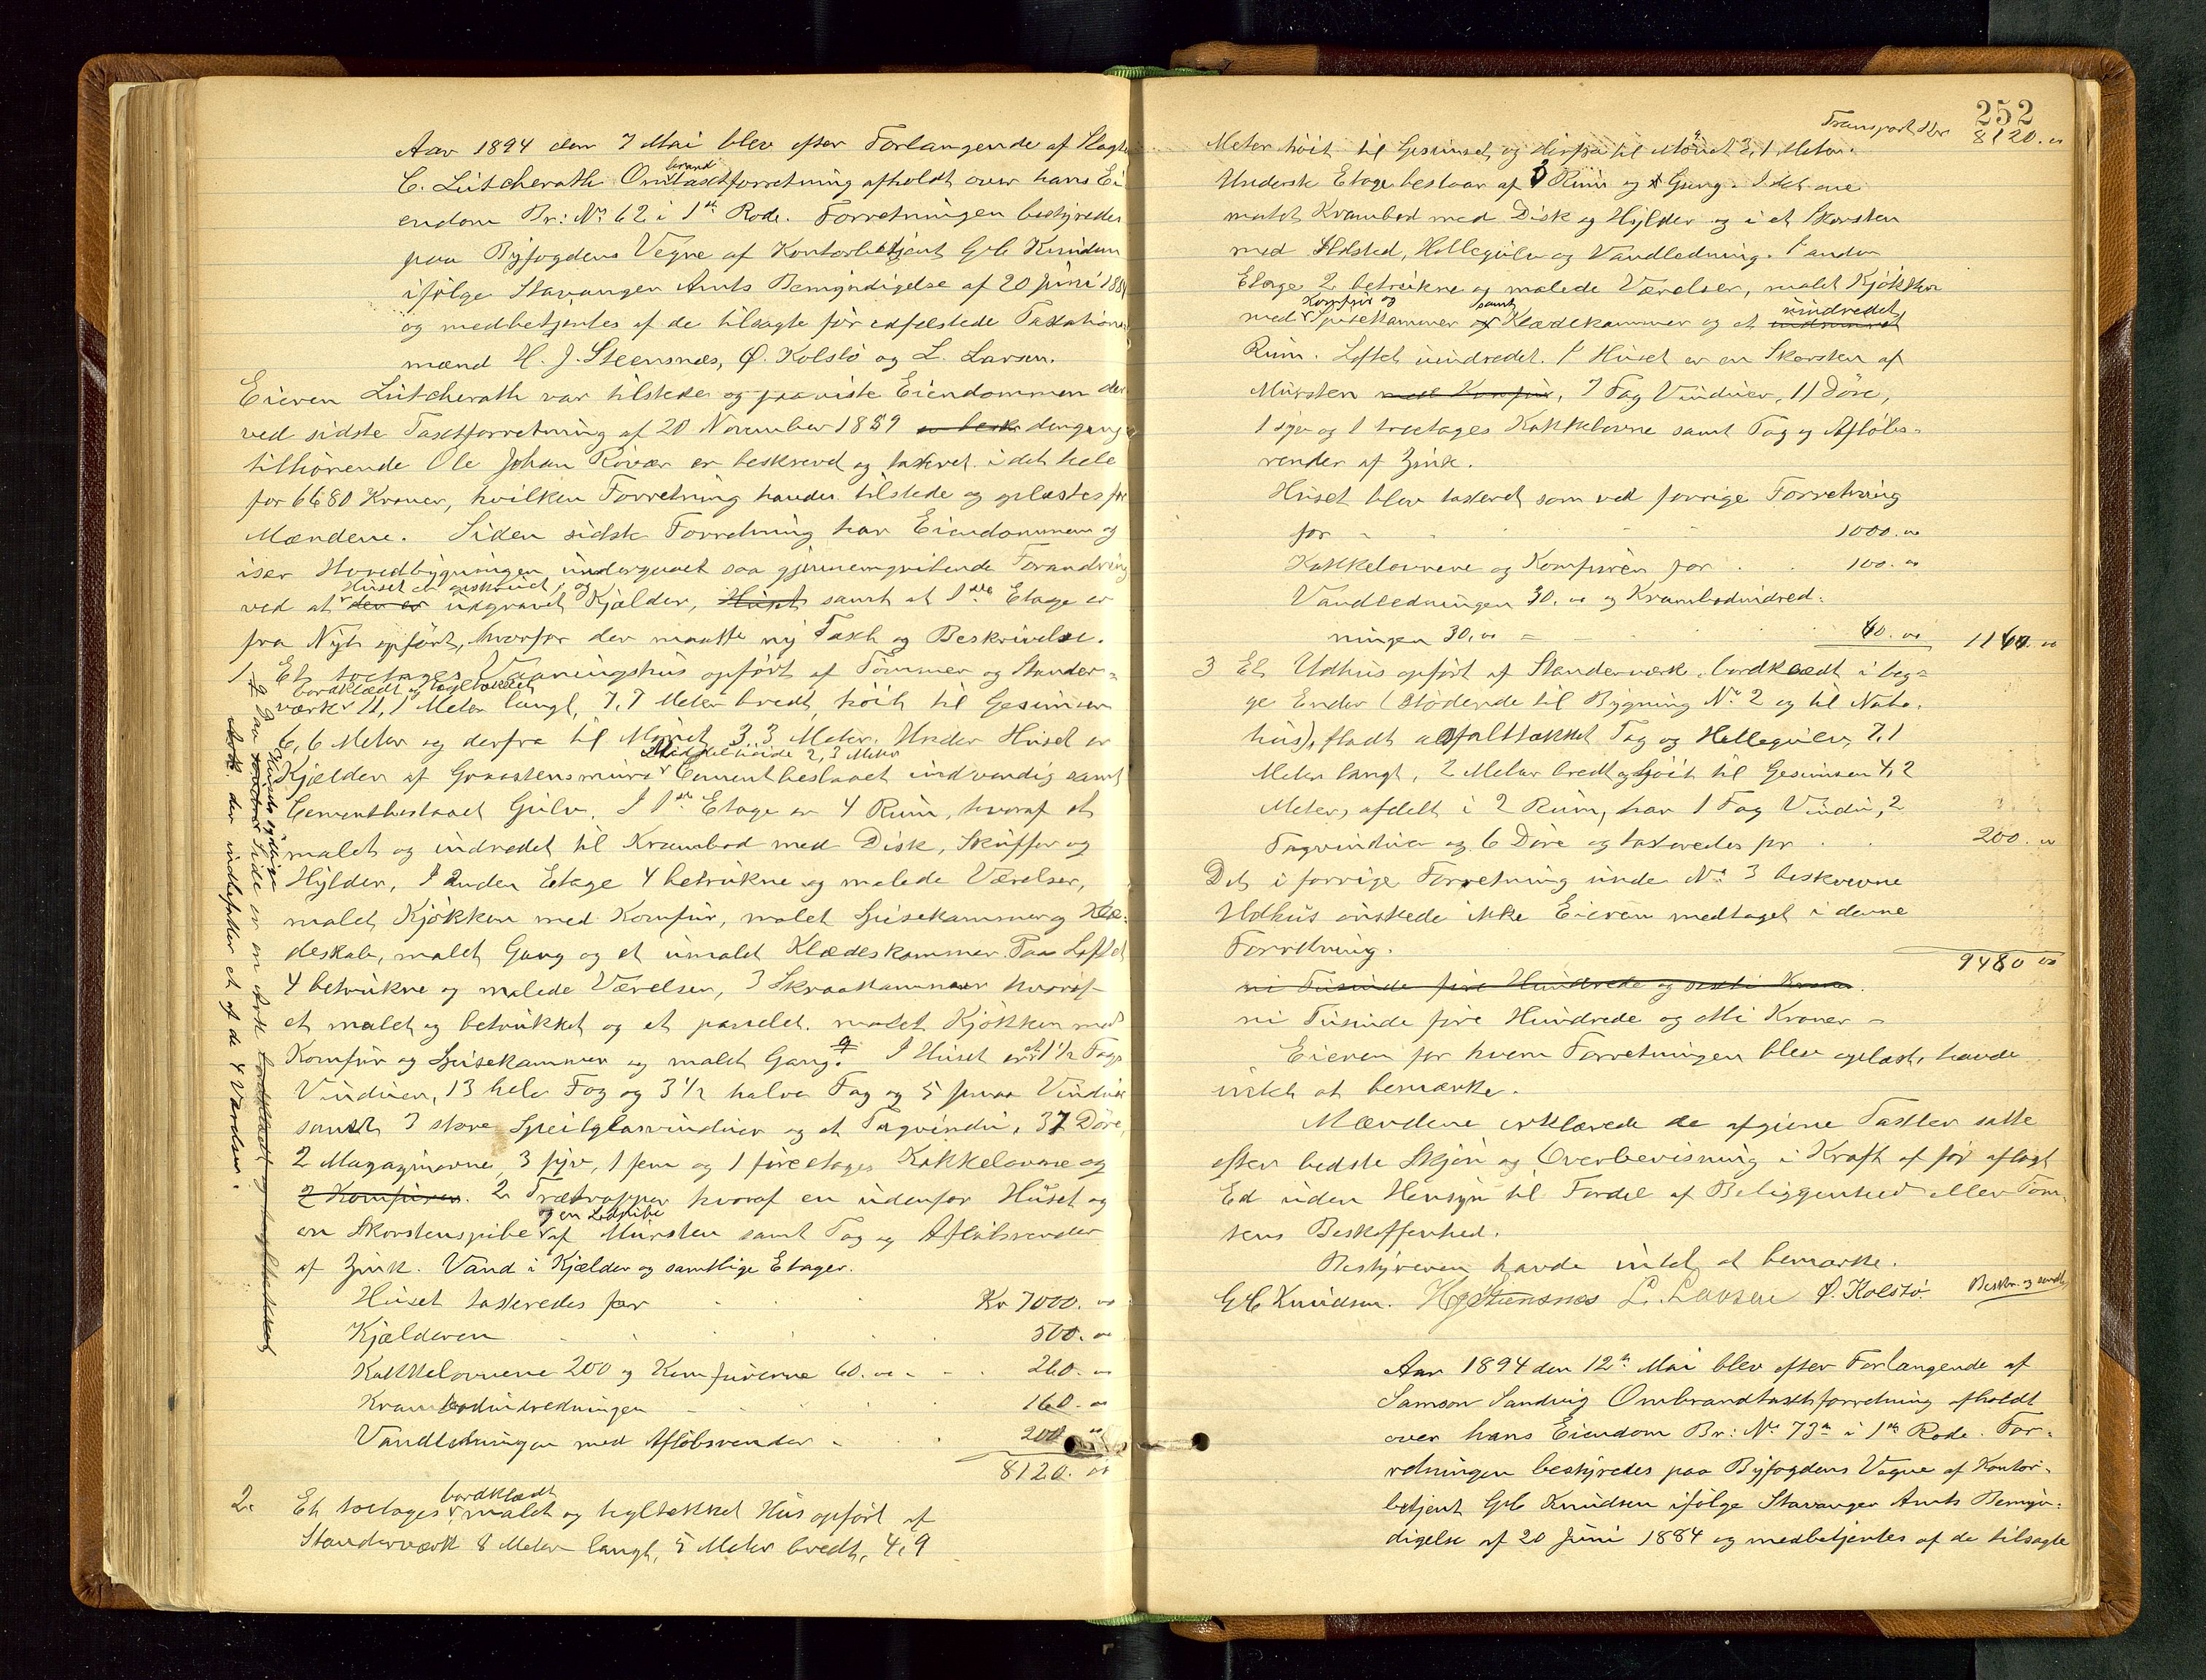 Aar 1894 den 7 Mai blev efter Forlangende af Slagter
C. Lütcherath Ombrandtaxtforretning afholdt over hans Ei
endom Br: No 62 i 1ste Rode. Forretningen bestyredes
paa Byfogdens Vegne af Kontorbetjent G.C. Knudsen
ifølge Stavanger Amts Bemyndigelse af 20 Juni 1884
og medbetjentes af de tilsagte før edfæstede Taxations
mænd H. J. Steensnæs, Ø. Kolstø og L. Larsen.
Eieren Lütcherath var tilstede og paaviste Eiendommen der
ved sidste Taxtforretning af 20 November 1889 dengang
tilhørende Ole Johan Røvær er beskrevet og taxeret i det hele
for 6680 Kroner, hvilken Forretning havdes tilstede og oplæstes for
Mændene. Siden sidste Forretning har Eiendommen og
især Hovedbygningen undergaaet saa gjennemgribende Forandring
Huset er opskruet, og
ved at den er udgravet Kjælder, Huset samt at 1ste Etage er
fra Nyt opført, hvorfor der maatte ny Taxt og Beskrivelse.
1. Et toetages Vaaningshus opført af Tømmer og Stander-
bordklædt og tagltækket
værk 11,1 Meter langt, 7,7 Meter bredt, høit til Gesimsen
6,6 Meter og derfra til Mønet 3,3 Meter. Under Huset er
Middelhøide 2,3 Meter
Kjælder af Graastensmure Cementbeslaaet indvendig samt
Cementbeslaaet Gulv. I 1ste Etage er 4 Rum, hvoraf et
malet og indredet til Krambod med Disk, Skuffer og
Hylder, I anden Etage 4 betrukne og malede Værelser,
malet Kjøkken med Komfur, malet Spisekammer og Klæ-
deskab, malet Gang og et umalet Klædeskammer. Paa Loftet
4 betrukne og malede Værelser, 3 Skraakammer hvoraf
et malet og betrukket og et panelet. malet Kjøkken med
Komfur og Spisekammer og malet Gang. I Huset er et 1½ Fags
Vinduer, 13 hele Fag og 3 ½ halve Fag og 5 smaa Vinduer
samt 3 store Speilglasvinduer og et Tagvindu, 37 Døre,
2 Magazinovne, 3 fyr, 1 fem og 1 fireetages Kakkelovne og
2 Komfurer. 2 Trætrapper hvoraf en udenfor Huset og
en Skorstenspibe af Mursten samt Tag og Afløbsrender
af Zink. Vand i Kjælder og samtlige Etager.
Huset taxeredes for Kr 7000. 00
Kjælderen 500. 00
Kakkelovnene 200 og Komfurerne 60. 00 260. 00
Krambodindredningen 160. 00
Vandledningen med Afløbsrender 200 00
8120. 00
bordklædt
2. Et toetages malet og tegltækket Hus opført af
Standerværk 8 Meter langt, 5 Meter bredt, 4,9
Paa Husets sydlige Side er en Ark bordklædt og tegltækket
Ark. der indbefatter et af de 4 Værelser.
252
Transport Kr 8120. 00
Meter høit til Gesimset og derfra til Mønet 3,1 Meter.
Underste Etage bestaar af 3 Rum og Gang. I det ene
malet Krambod med Disk og Hylder og i et Skorsten
med Ildsted, Hellegulv og Vandledning. I anden
Etage 2 betrukne og malede Værelser, malet Kjøkken
Komfur og samt uindredet
med Spisekammer og Klædekammer og et indrettet
Rum. Loftet uindredet. I Huset er en Skorsten af
Mursten med Komfur, 7 Fag Vinduer, 11 Døre,
1 syv og 1 treetages Kakkelovne samt Tag og Afløbs-
render af Zink.
Huset blev taxeret som ved forrige Forretning
for 1000. 00
Kakkelovnene og Komfuren for 100. 00
Vandledningen 30. 00 og Krambodindred-
ningen 30, 00 60. 00 1160. 00
3 Et Udhus opført af Standerværk, bordklædt i beg-
ge Ender (stødende til Bygning No 2 og til Nabo-
hus), fladt asfalttækket Tag og Hellegulv, 7,1
Meter langt, 2 Meter bredt og høit til Gesimsen 4,2
Meter, afdelt i 2 Rum, har 1 Fag Vindu, 2
Tagvinduer og 6 Døre og taxeredes for 200. 00
Det i forrige Forretning under No 3 beskrevne
Udhus ønskede ikke Eieren medtaget i denne
Forretning.
9480 00
ni Tusinde fire Hundrede og sexti Kroner.
ni Tusinde fire Hundrede og otti Kroner -
Eieren for hvem Forretningen blev oplæst, havde
intet at bemærke.
Mændene erklærede de afgivne Taxter satte
efter bedste Skjøn og Overbevisning i Kraft af før aflagt
Ed uden Hensyn til Fordel af Beliggenhed eller Tom-
tens Beskaffenhed.
Bestyreren havde intet at bemærke.
G.C. Knudsen. H J Steensnæs L. Larsen Ø. Kolstø.
Aar 1894 den 12te Mai blev efter Forlangende af
Samson Sandvig Ombrandtaxtforretning afholdt
over hans Eiendom Br: No 73a i 1ste Rode. For-
retningen bestyredes paa Byfogdens Vegne af Kontor-
betjent G.C. Knudsen ifølge Stavanger Amts Bemyn-
digelse af 20 Juni 1884 og medbetjentes af de tilsagte